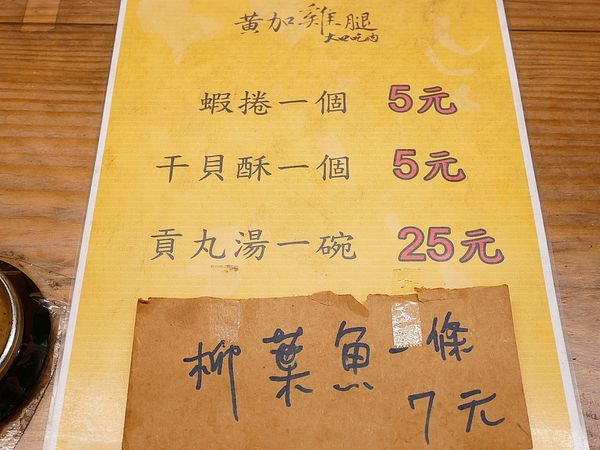 黃加雞腿
大口吃肉
蝦捲一個 5元
干貝酥一個 5元
貢丸湯一碗 25元
柳葉魚一條
7元